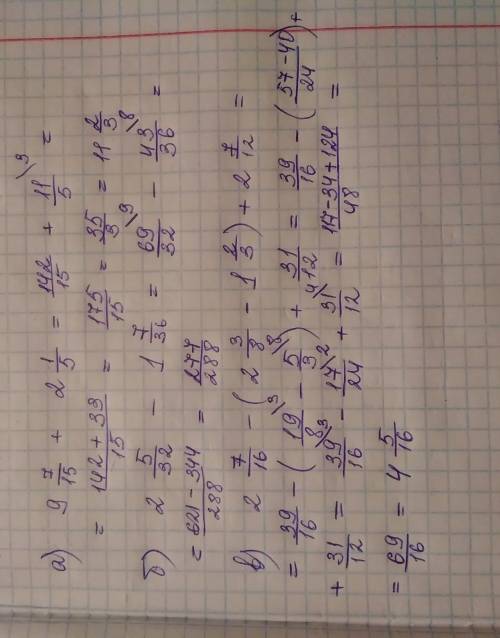 а) 9 7/15 + 2 1/5 = 142/15 + 11/5 \3 =
= 142 + 33/15 = 175/15 = 35/3 = 11 2/3
б) 2 5/32 - 1 7/36 = 69/32 \9 - 43/36 \8 =
= 621 - 344/288 = 277/288
в) 2 7/16 - (2 3/8 - 1 2/3) + 2 7/12 =
= 39/16 - (19/8 \3 - 5/3 \8) + 31/12 = 39/16 - (57 - 40/24) +
+ 31/12 = 39/16 \3 - 17/24 \2 + 31/12 \4 = 117 - 34 + 124/48 =
= 69/16 = 4 5/16